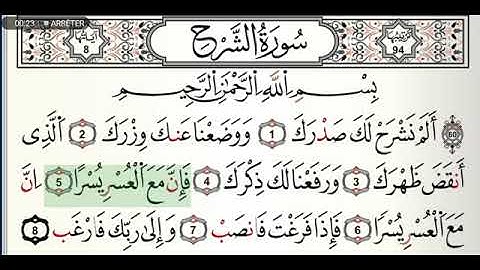 00:23 ARRÊTER
آياتها 8
سُورَةُ الشَّرْحِ
ترتيبها 94
بِسْمِ اللَّهِ الرَّحْمَٰنِ الرَّحِيمِ
60 أَلَمْ نَشْرَحْ لَكَ صَدْرَكَ 1 وَوَضَعْنَا عَنكَ وِزْرَكَ 2 الَّذِى
أَنقَضَ ظَهْرَكَ 3 وَرَفَعْنَا لَكَ ذِكْرَكَ 4 فَإِنَّ مَعَ الْعُسْرِ يُسْرًا 5 إِنَّ
مَعَ الْعُسْرِ يُسْرًا 6 فَإِذَا فَرَغْتَ فَانصَبْ 7 وَإِلَى رَبِّكَ فَارْغَب 8